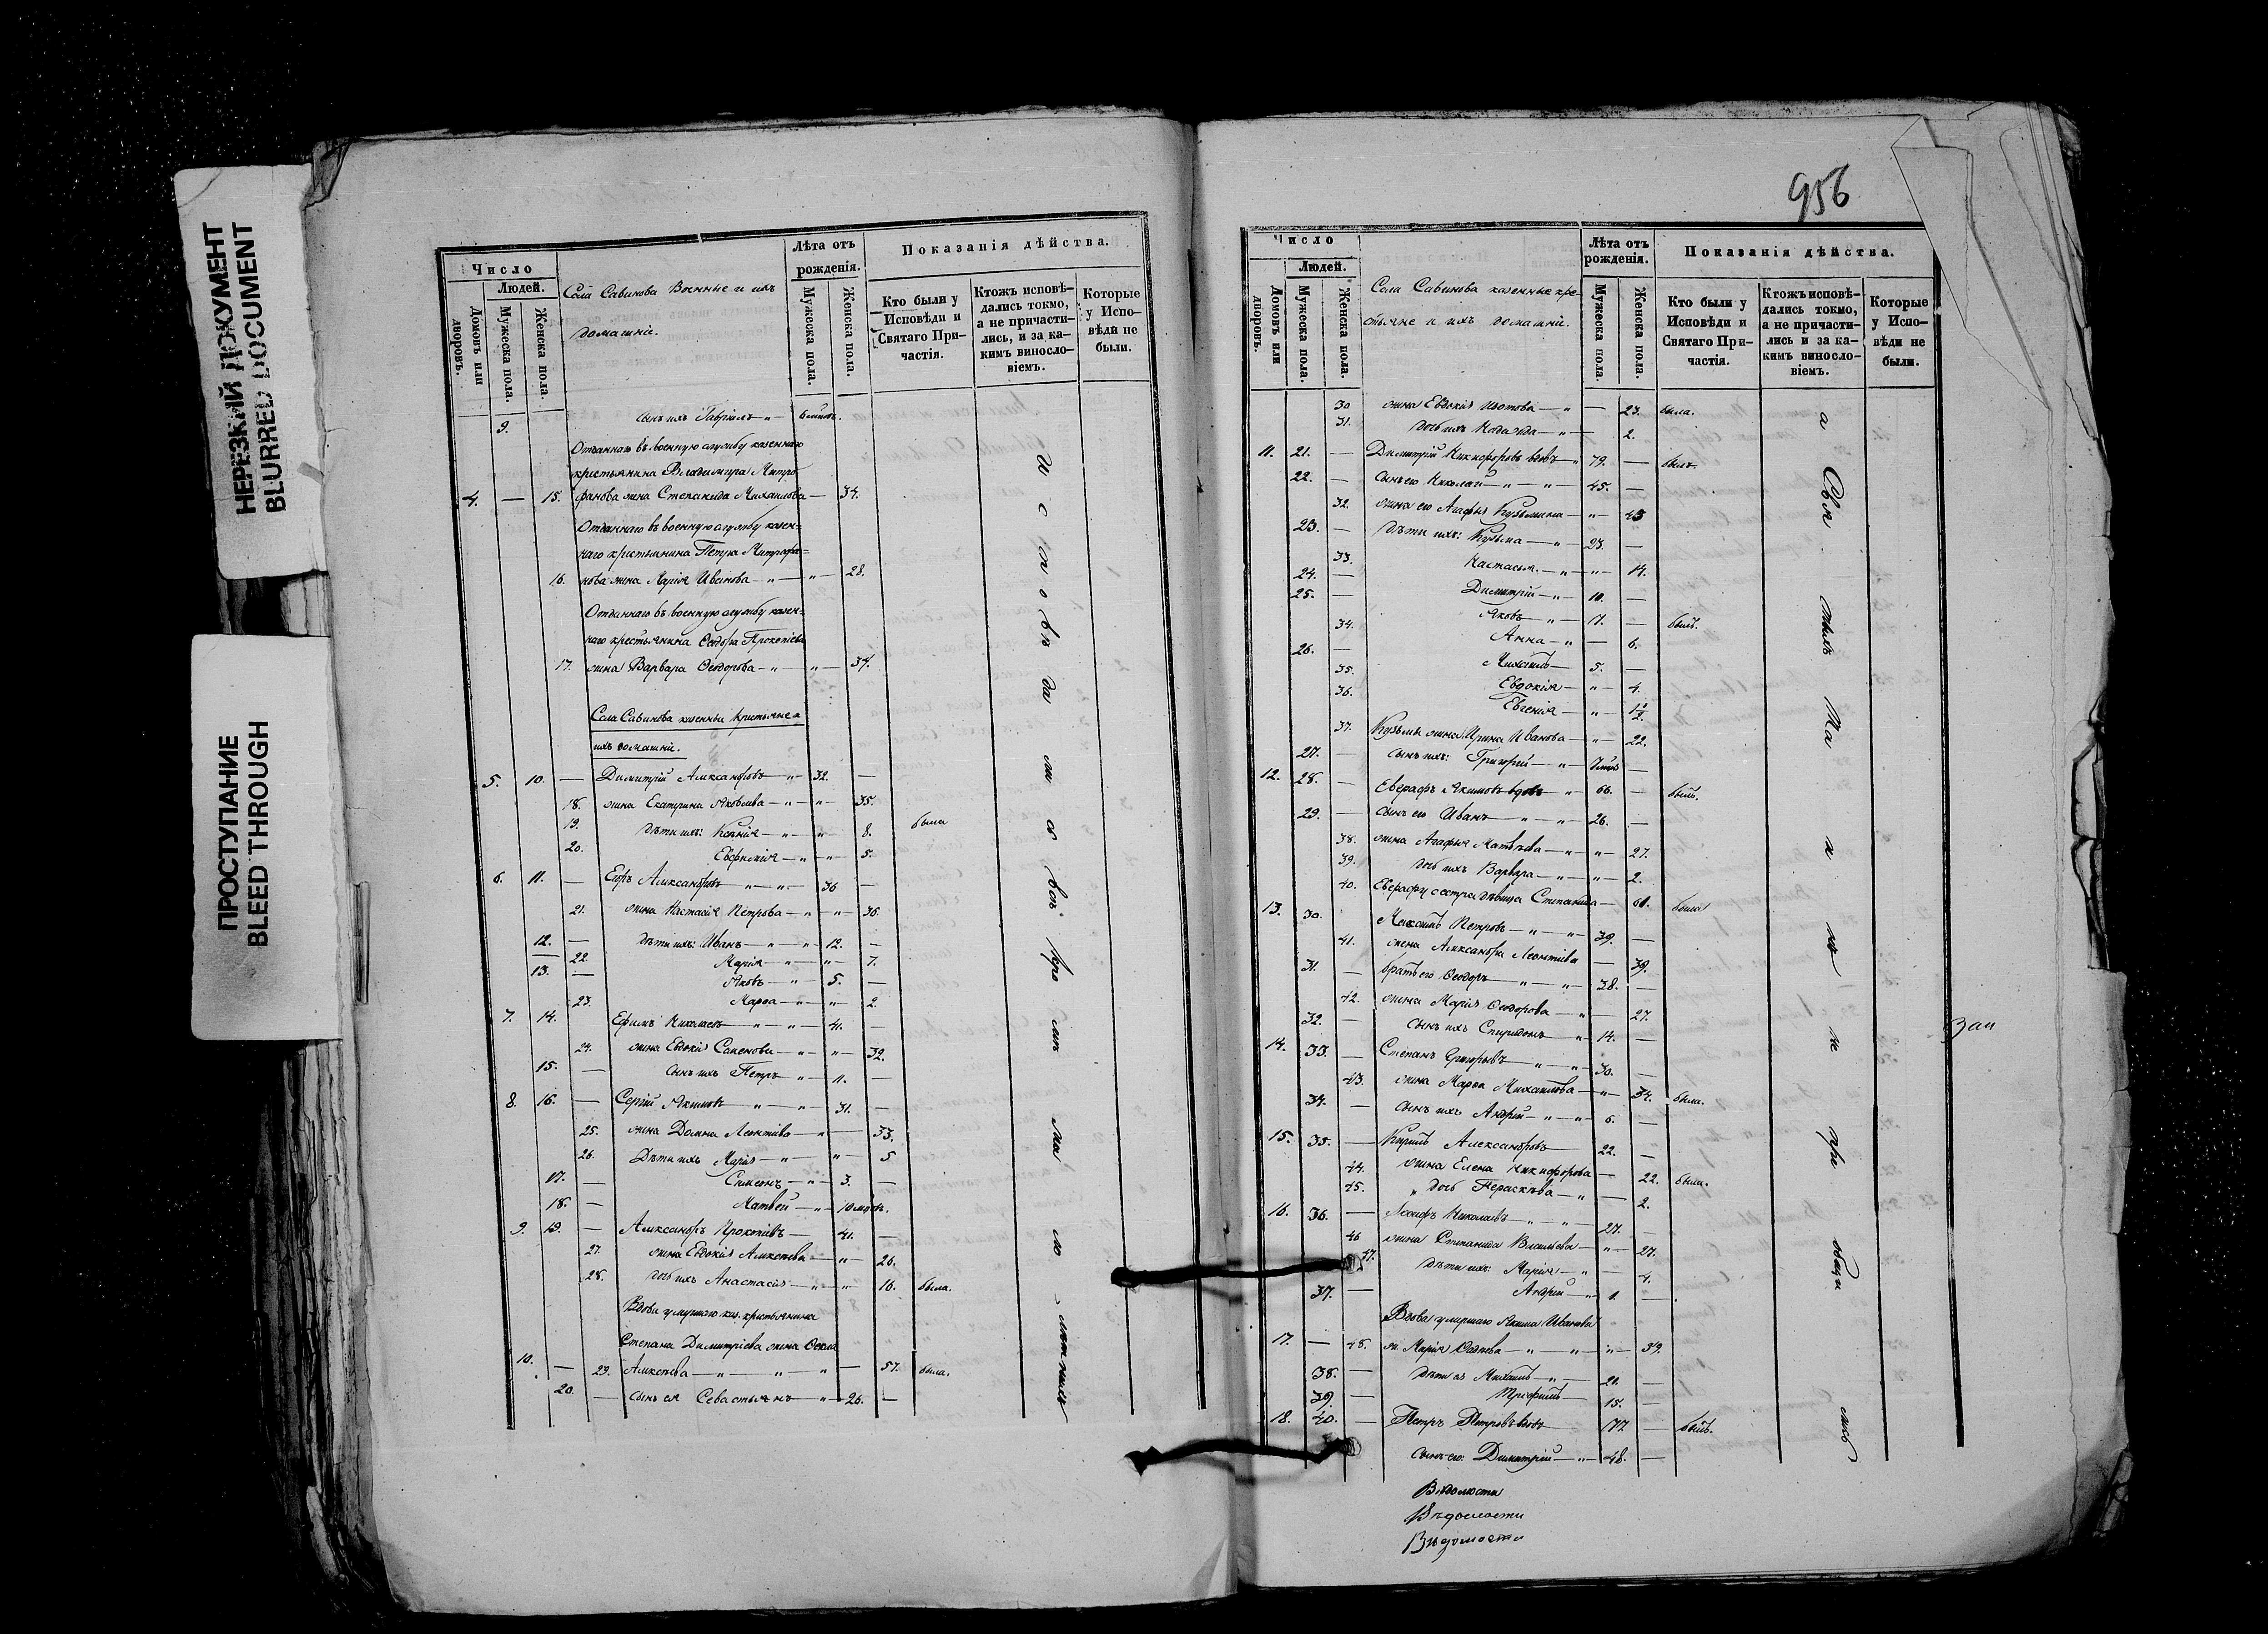 НЕРЕЗКИЙ ДОКУМЕНТ
BLURRED DOCUMENT
ПРОСТУПАНИЕ
BLEED THROUGH
Число
Людей.
Домовъ или дворовъ.
Мужеска пола.
Женска пола.
Села Савинова Военные и ихъ
домашніе.
Лѣта отъ рожденія.
Мужеска пола.
Женска пола.
Показанія дѣйства.
Кто были у Исповѣди и Святаго Причастія.
Ктожъ исповѣдались токмо, а не причастились, и за какимъ винословіемъ.
Которые у Исповѣди не были.
9. сынъ ихъ Гавріилъ — 6 мѣсъ.
Отданнаго въ военную службу казеннаго
крестьянина Владимира Митро
4. — 15. фанова жена Степанида Михаилова — 34.
Отданнаго въ военную службу казен=
наго крестьянина Петра Митрофа=
16. нова жена Марія Иванова — " — 28.
Отданнаго въ военную службу казен=
наго крестьянина Ѳеодора Прокопіева
17. жена Варвара Ѳеодорова — " — 34.
Села Савинова казенные крестьяне и
ихъ домашніе.
5. 10. — Димитрій Александровъ — " 32. —
18. жена Екатерина Яковлева — " — 35.
19. дѣти ихъ: Ксенія — " — 8. была
20. Евфимія — " — 5.
6. 11. — Александровъ — " — 36 —
21. жена Настасія Петрова — " — 36.
12. — дѣти ихъ: Иванъ — " — 12. —
22. Марія — " — 7.
13. — Яковъ — " 5. —
23. Марѳа — " — 2.
7. 14. Ефимъ Николаевъ — " — 41. —
24. жена Евдокія — " — 32.
15. — сынъ ихъ Петръ — " 11. —
8. 16. — Сергій Якимовъ " — " 31. —
25. жена Домна Леонтіева — " — 33.
26. Дѣти ихъ Марія — " — 5
17. — Симеонъ — " 3. —
18. — Матвей — " 10 мѣсъ.
9. 19. — Александръ Прокопіевъ — 41. —
27. жена Евдокія Алексѣева — " — 26.
28. дочь ихъ Анастасія — " — 16. была.
Вдова умершаго каз. крестьянина
Степана Димитріева жена Ѳекла
10. — 29. Алексѣева — " — " — 57. была.
20. — сынъ ея Севастьянъ — " 26. —
Исповѣдались въ
956
Число
Людей.
Домовъ или дворовъ.
Мужеска пола.
Женска пола.
Села Савинова казенные кре-
стьяне и ихъ домашніе.
Лѣта отъ рожденія.
Мужеска пола.
Женска пола.
Показанія дѣйства.
Кто были у Исповѣди и Святаго Причастія.
Ктожъ исповѣдались токмо, а не причастились и за какимъ винословіемъ.
Которые у Исповѣди не были.
30 жена Евдокія — " — 23. была.
31. дочь ихъ Надежда — " — 2.
11. 21. — Димитрій Никифоровъ вдовъ — 79. — былъ.
22. — сынъ его Николай — " — 45. —
32. жена его Агафья Кузьмина — " — 45
23. — дѣти ихъ: Кузьма — " — 23. —
33. Настасья — " — 14.
24. — Димитрій — " 10. —
25. — Яковъ — " 7. — былъ.
34. Анна — " — 6.
26. — Михаилъ — 5. —
35. Евдокія — " — 4.
36. Евгенія — " — 1½.
37. Кузьмы жена Ирина Иванова — " — 22.
27. — сынъ ихъ: Григорій — " —
12. 28. — Евграфъ Якимовъ вдовъ " 66. — былъ.
29. — сынъ его Иванъ " — " 26. —
38. жена Агафья Матвѣева — " — 27.
39. дочь ихъ Варвара — " — 2.
40. Евграфу сестра дѣвица Степанида — 61. была
13. 30. Максимъ Петровъ — " — 39. —
41. жена Александра Леонтіева — 39.
31. — братъ его Ѳеодоръ — " — 38. —
42. жена Марія Ѳеодорова — " — 27.
32. — сынъ ихъ Спиридонъ — " 14. —
14. 33. — Степанъ Григорьевъ — " — 30. —
43. жена Марѳа Михаилова — " — 34. была.
34. — сынъ ихъ Андрей — " — 6. —
15. 35. — Кирилъ Александровъ — 22. —
44. жена Елена Никифорова — 22. была.
45. " дочь Параскева — " — 2.
16. 36. — Николаевъ — " — 27. —
46 жена Степанида Васильева — " — 27.
47. дѣти ихъ: Марія — " — 4.
37. — Андрей — " 1. —
Вдова умершаго Якима Иванова
17. — 48. ж. Марія — " — " — 39.
38. — дѣти ея Михаилъ — " — 21. —
39. — Трофимъ — 15. —
18. 40. — Петръ Петровъ вдовъ — 77 — былъ.
сынъ его: Димитрій — " — 48. —
а Святыхъ Таинъ не приобщались
Зап
Вѣдомости
Вѣдомости
Вѣдомости